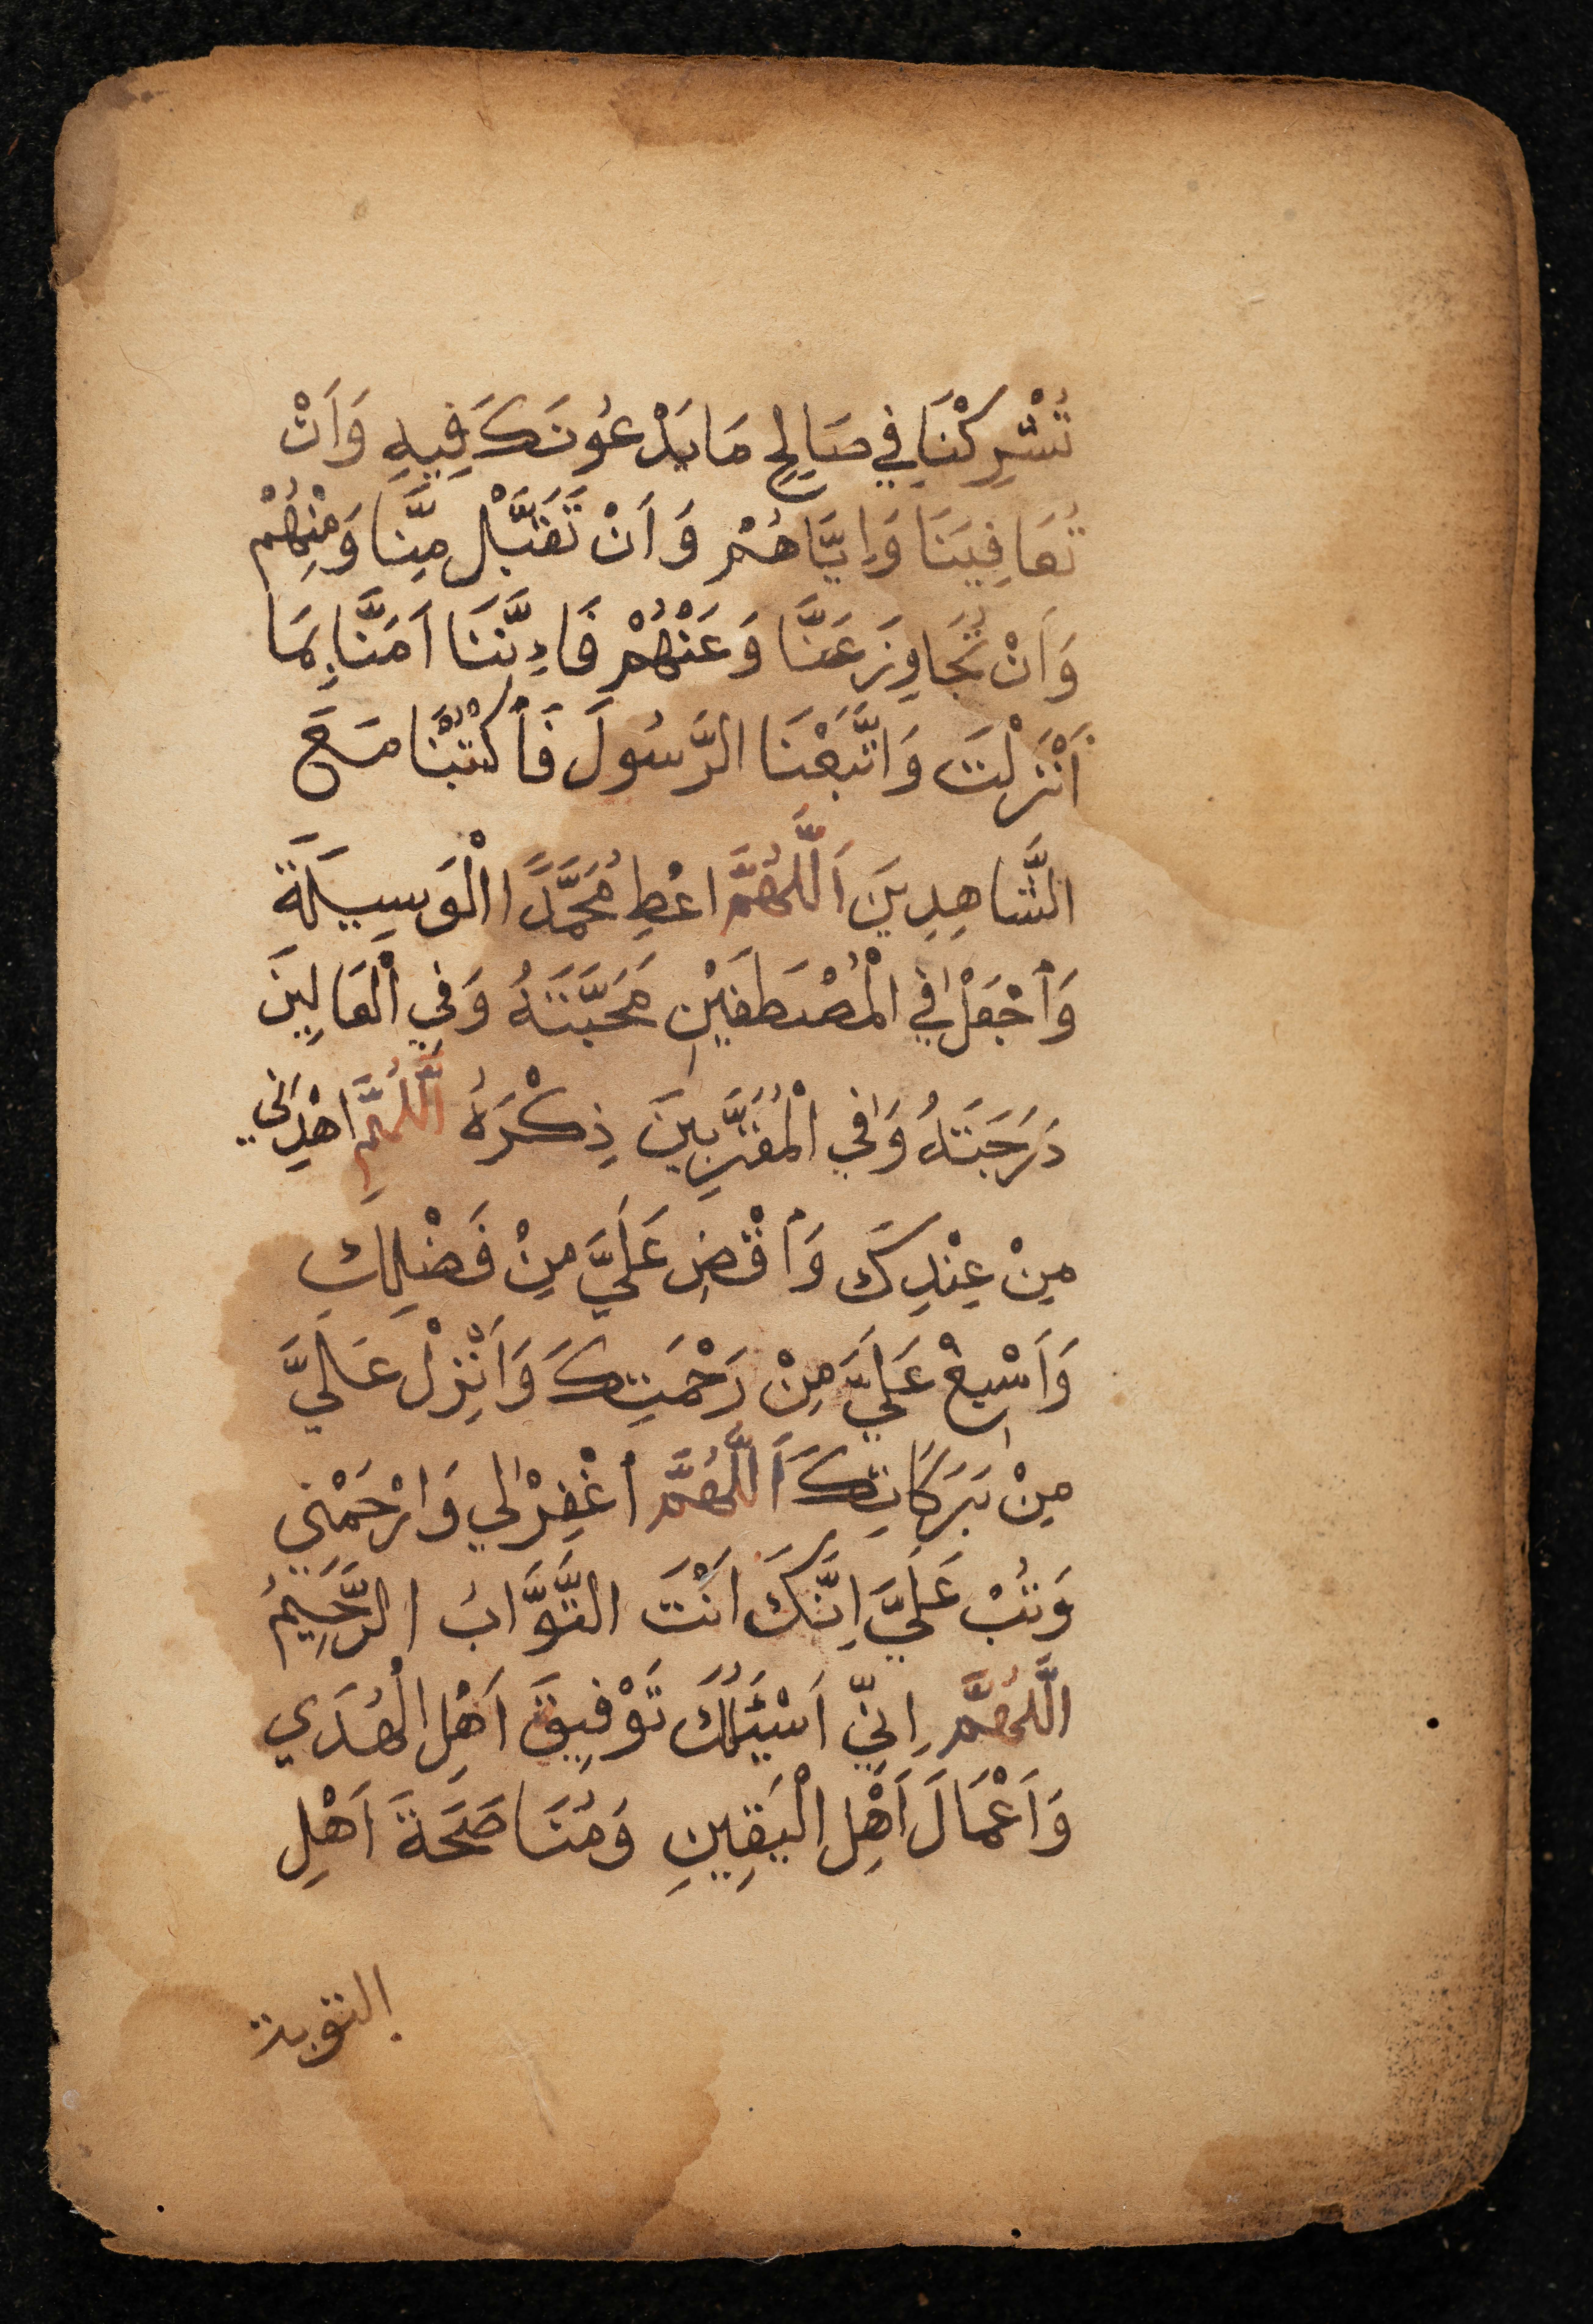 تُشْرِكْنَا فِي صَالِحِ مَا يَدْعُونَكَ فِيهِ وَاَنْ
تُعَافِيَنَا وَاِيَّاهُمْ وَاَنْ تَقَبَّلْ مِنَّا وَمِنْهُمْ
وَاَنْ تُجَاوِزَ عَنَّا وَعَنْهُمْ فَاِنَّنَا اَمَنَّا بِمَا
اَنْزَلْتَ وَاتَّبَعْنَا الرَّسُولَ فَاكْتُبْنَا مَعَ
الشَّاهِدِينَ اَللَّهُمَّ اعْطِ مُحَمَّدًا الْوَسِيلَةَ
وَاجْعَلْ فِي الْمُصْطَفَيْنِ مَحَبَّتَهُ وَفِي الْعَالِينَ
دَرَجَتَهُ وَفِي الْمُقَرَّبِينَ ذِكْرَهُ اَللَّهُمَّ اهْدِنِي
مِنْ عِنْدِكَ وَاقْضِ عَلَيَّ مِنْ فَضْلِكَ
وَاَسْبِغْ عَلَيَّ مِنْ رَحْمَتِكَ وَاَنْزِلْ عَلَيَّ
مِنْ بَرَكَاتِكَ اَللَّهُمَّ اغْفِرْ لِي وَارْحَمْنِي
وَتُبْ عَلَيَّ اِنَّكَ اَنْتَ التَّوَّابُ الرَّحِيمُ
اللَّهُمَّ اِنِّي اَسْئَلُكَ تَوْفِيقَ اَهْلِ الْهُدَي
وَاَعْمَالَ اَهْلِ الْيَقِينِ وَمُنَاصَحَةَ اَهْلِ
التوبة